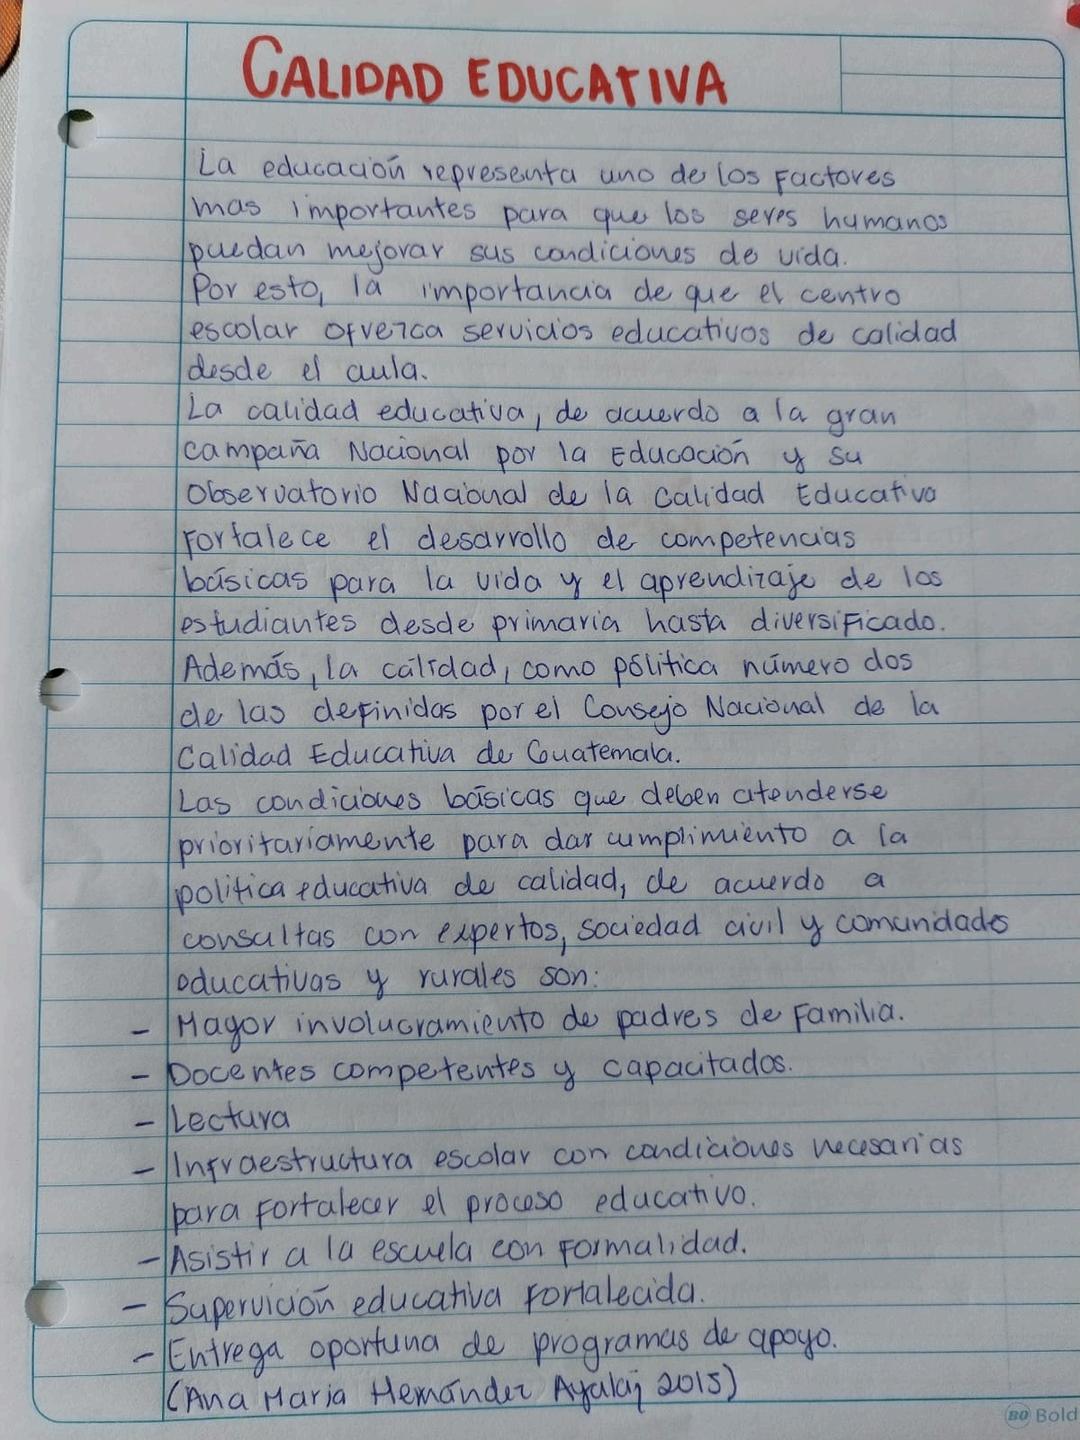 CALIDAD EDUCATIVA
La educación representa uno de los factores
mas importantes para que los seres humanos
puedan mejorar sus condiciones de vida.
Por esto, la importancia de que el centro
escolar ofrezca servicios educativos de calidad
desde el aula.
La calidad educativa, de acuerdo a la gran
campaña Nacional por la Educación y su
Observatorio Nacional de la Calidad Educativa
fortalece el desarrollo de competencias
básicas para la vida y el aprendizaje de los
estudiantes desde primaria hasta diversificado.
Además, la cálidad, como pólitica número dos
de las definidas por el Consejo Nacional de la
Calidad Educativa de Guatemala.
Las condiciones básicas que deben atenderse
prioritariamente para dar cumplimiento a la
politica educativa de calidad, de acuerdo a
consultas con expertos, sociedad civil y comunidades
educativas y rurales son:
- Mayor involucramiento de padres de familia.
- Docentes competentes y capacitados.
- Lectura
- Infraestructura escolar con condiciones necesarias
para fortalecer el proceso educativo.
- Asistir a la escuela con formalidad.
- Supervición educativa fortalecida.
- Entrega oportuna de programas de apoyo.
(Ana Maria Hernández 2015)
BO Bold